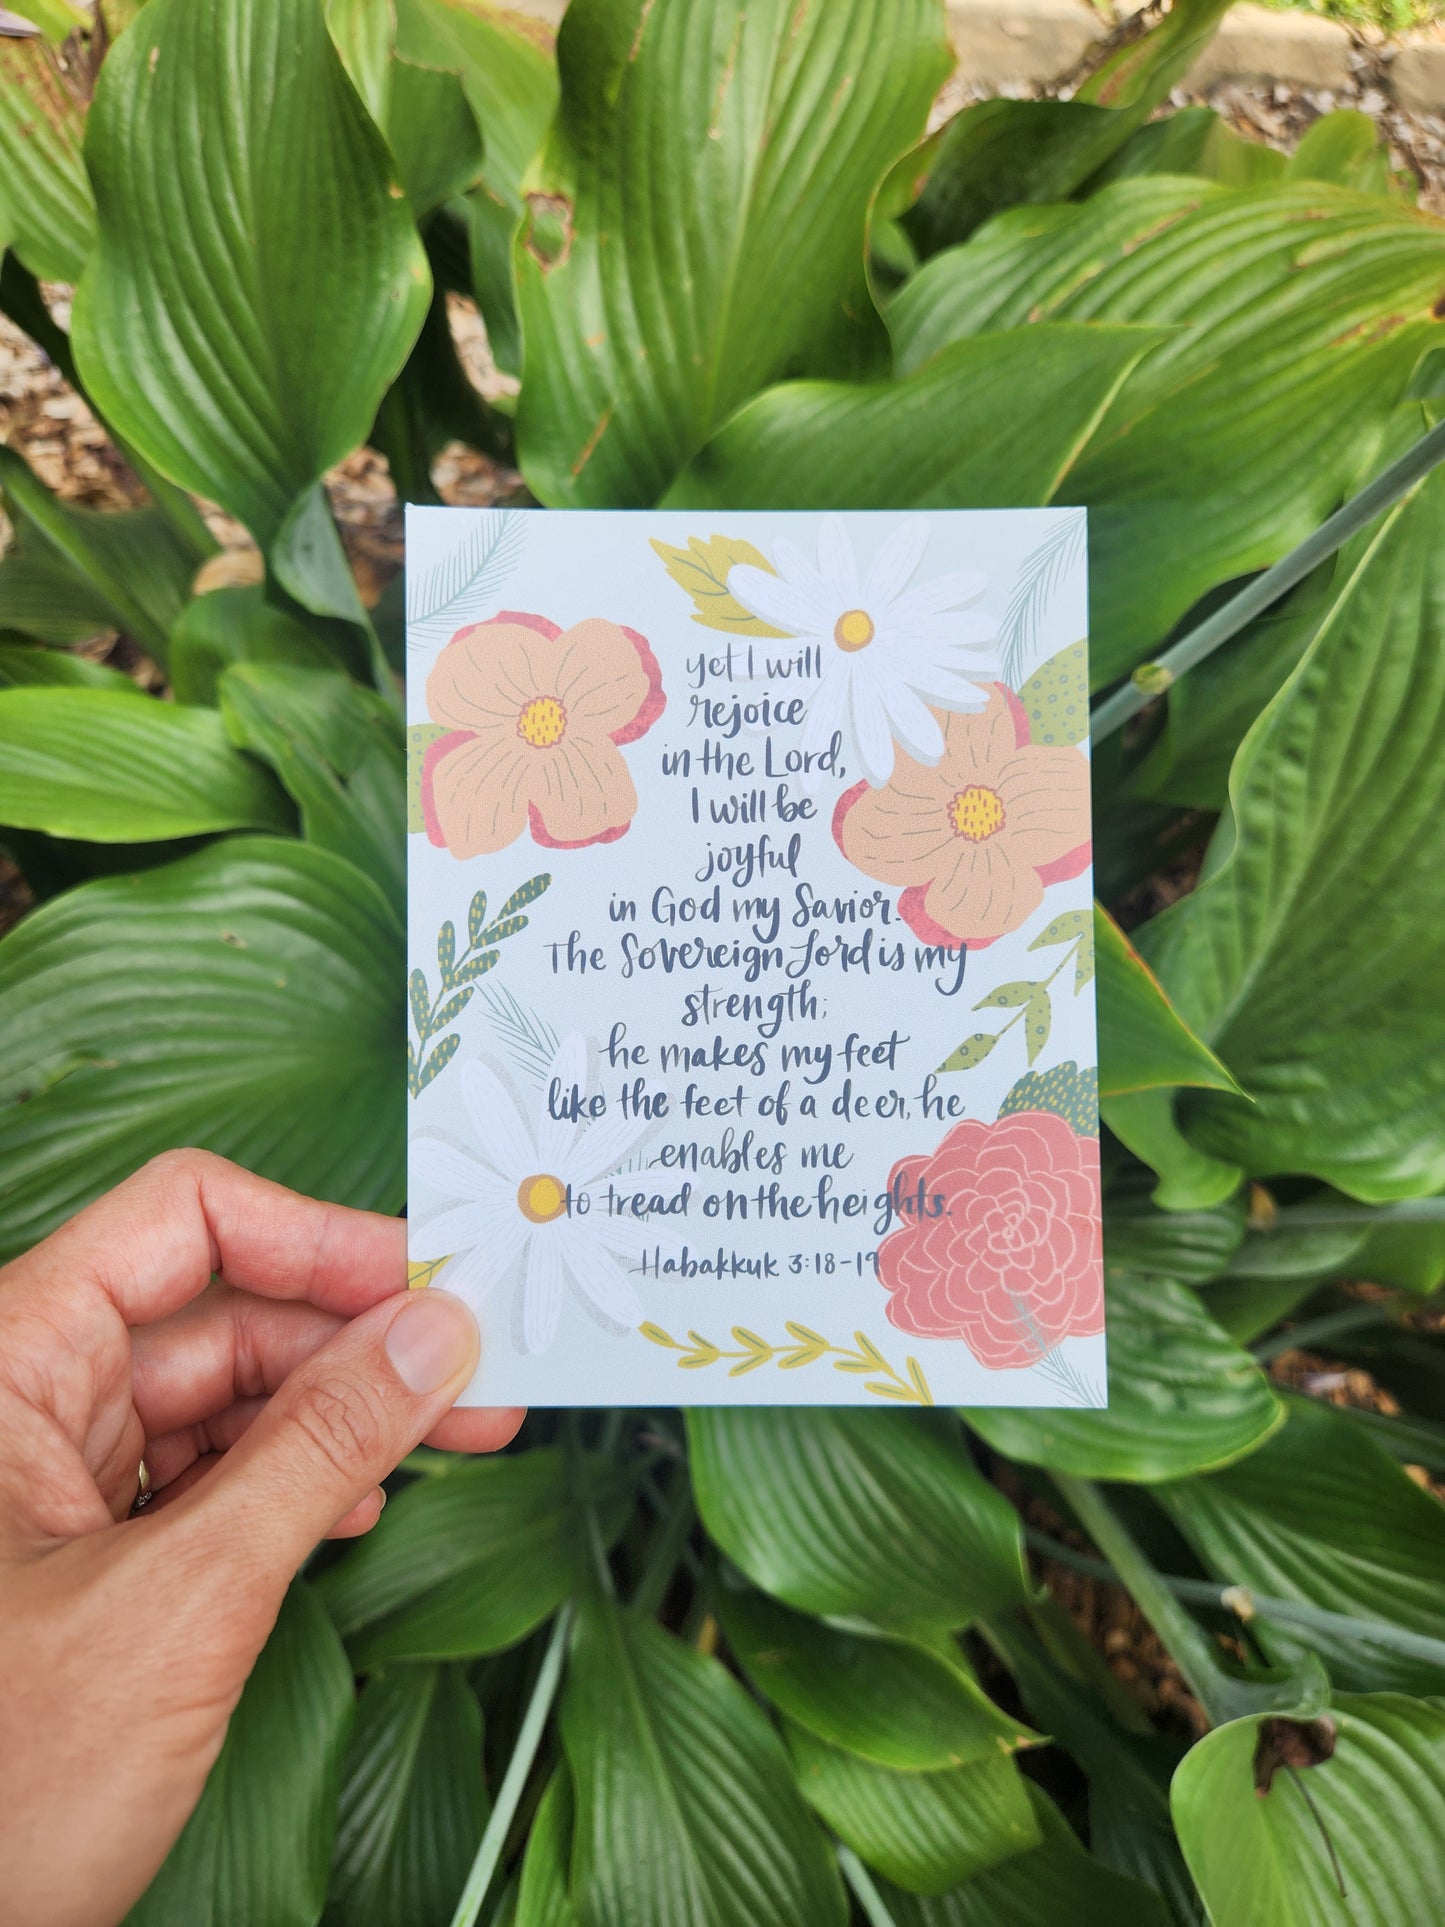 yet I will
rejoice
in the Lord,
I will be
joyful
in God my Savior.
The Sovereign Lord is my
strength;
he makes my feet
like the feet of a deer, he
enables me
to tread on the heights.
Habakkuk 3:18-19